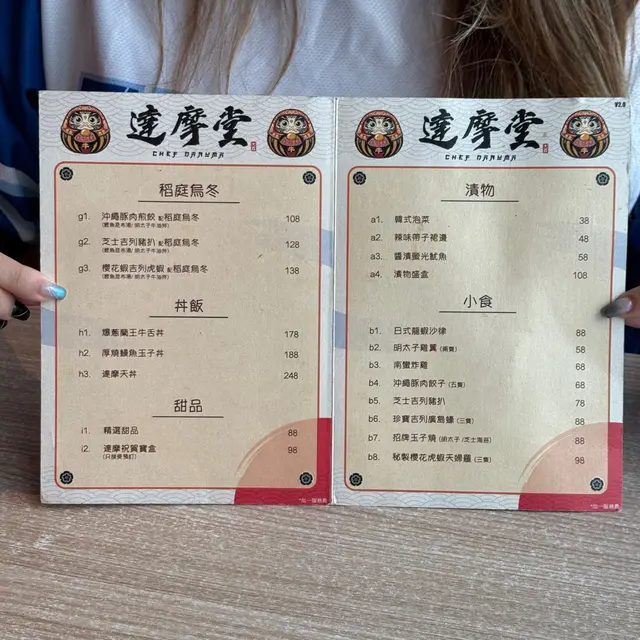 達摩堂
CHEF DARUMA
稻庭烏冬
g1. 沖繩豚肉煎餃 配稻庭烏冬 108
(鰹魚昆布湯/ 明太子牛油拌)
g2. 芝士吉列豬扒 配稻庭烏冬 128
(鰹魚昆布湯/ 明太子牛油拌)
g3. 櫻花蝦吉列虎蝦 配稻庭烏冬 138
(鰹魚昆布湯/ 明太子牛油拌)
丼飯
h1. 爆葱蘭王牛舌丼 178
h2. 厚燒鰻魚玉子丼 188
h3. 達摩天丼 248
甜品
i1. 精選甜品 88
i2. 達摩祝賀寶盒 98
(只接受預訂)
*加一服務費
V2.0
達摩堂
CHEF DARUMA
漬物
a1. 韓式泡菜 38
a2. 辣味帶子裙邊 48
a3. 醬漬螢光魷魚 58
a4. 漬物盛盒 108
小食
b1. 日式龍蝦沙律 88
b2. 明太子雞翼 (兩隻) 58
b3. 南蠻炸雞 68
b4. 沖繩豚肉餃子 (五隻) 68
b5. 芝士吉列豬扒 78
b6. 珍寶吉列廣島蠔 (三隻) 88
b7. 招牌玉子燒 (明太子 /芝士海苔) 88
b8. 秘製櫻花虎蝦天婦羅 (三隻) 98
*加一服務費